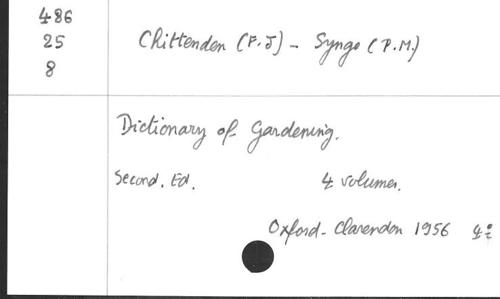 486
25
8
Chittenden (F.J) - Synge (P.M.)
Dictionary of Gardening.
Second. Ed. 4 volumes.
Oxford - Clarendon 1956 4º